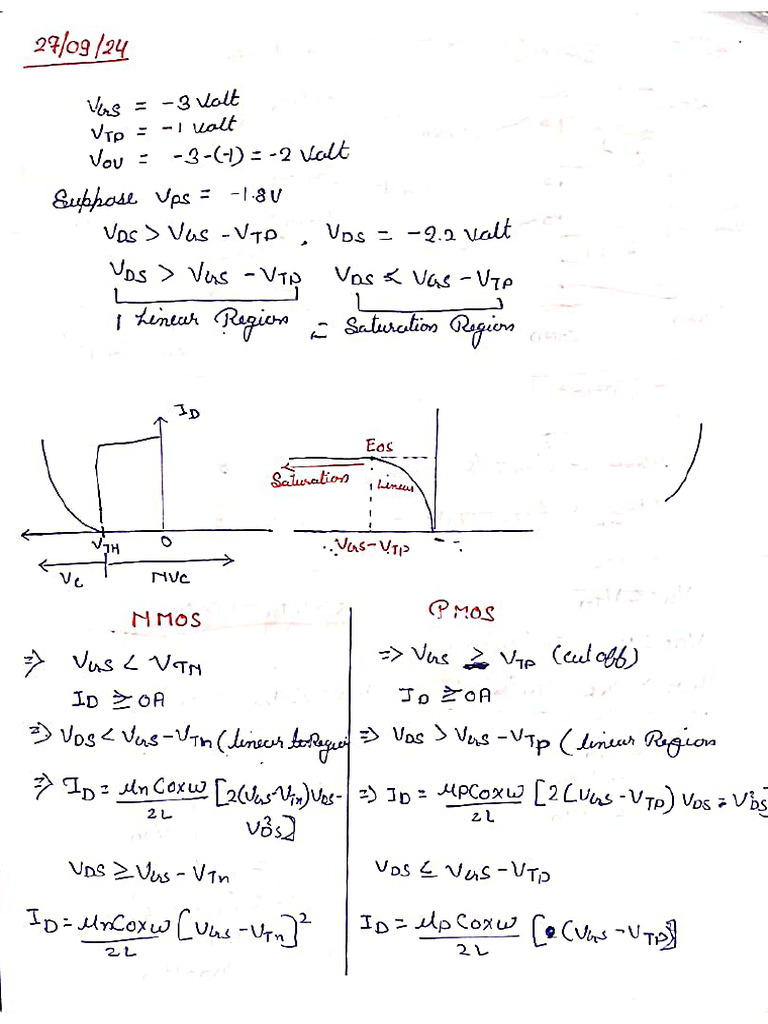 27/09/24
VGS = -3 Volt
VTP = -1 Volt
VOV = -3-(-1) = -2 Volt
Suppose VDS = -1.8V
VDS > VGS - VTP , VDS = -2.2 Volt
VDS > VGS - VTP VDS < VGS - VTP
Linear Region = Saturation Region
ID
EOS
Saturation
Linear
VTH 0
VGS-VTP
VC NVC
NMOS PMOS
⇒ VGS < VTN
ID ≥ 0A
⇒ VDS < VGS - VTn (linear Region
⇒ ID = μn Cox W / 2L [2(VGS-VTn)VDS - VDS²]
VDS ≥ VGS - VTn
ID = μn Cox W / 2L [VGS - VTn]²
⇒ VGS ≥ VTP (cut off)
ID ≥ 0A
⇒ VDS > VGS - VTP (linear Region
⇒ ID = μP Cox W / 2L [2(VGS - VTP) VDS - VDS²]
VDS ≤ VGS - VTP
ID = μP Cox W / 2L [(VGS - VTP)]